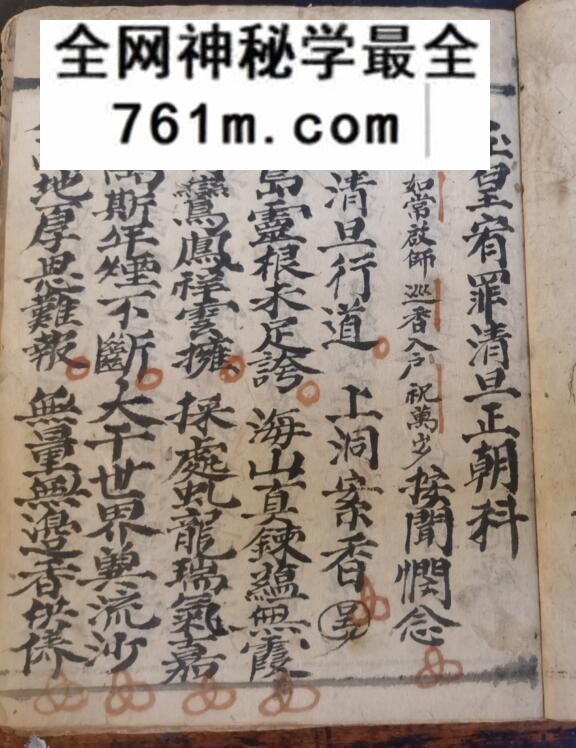 全网神秘学最全
761m.com
皇宥罪清旦正朝科
如常啟師 巡香入户 祝萬歲 按聞憫念
清旦行道 上洞案香
島靈根未足誇 海山真鍊蘊無霞
鸞鳳祥雲擁 採處虬龍瑞氣嘉
斯年煙不斷 大千世界奧流沙
地厚恩難報 無量無邊香供養